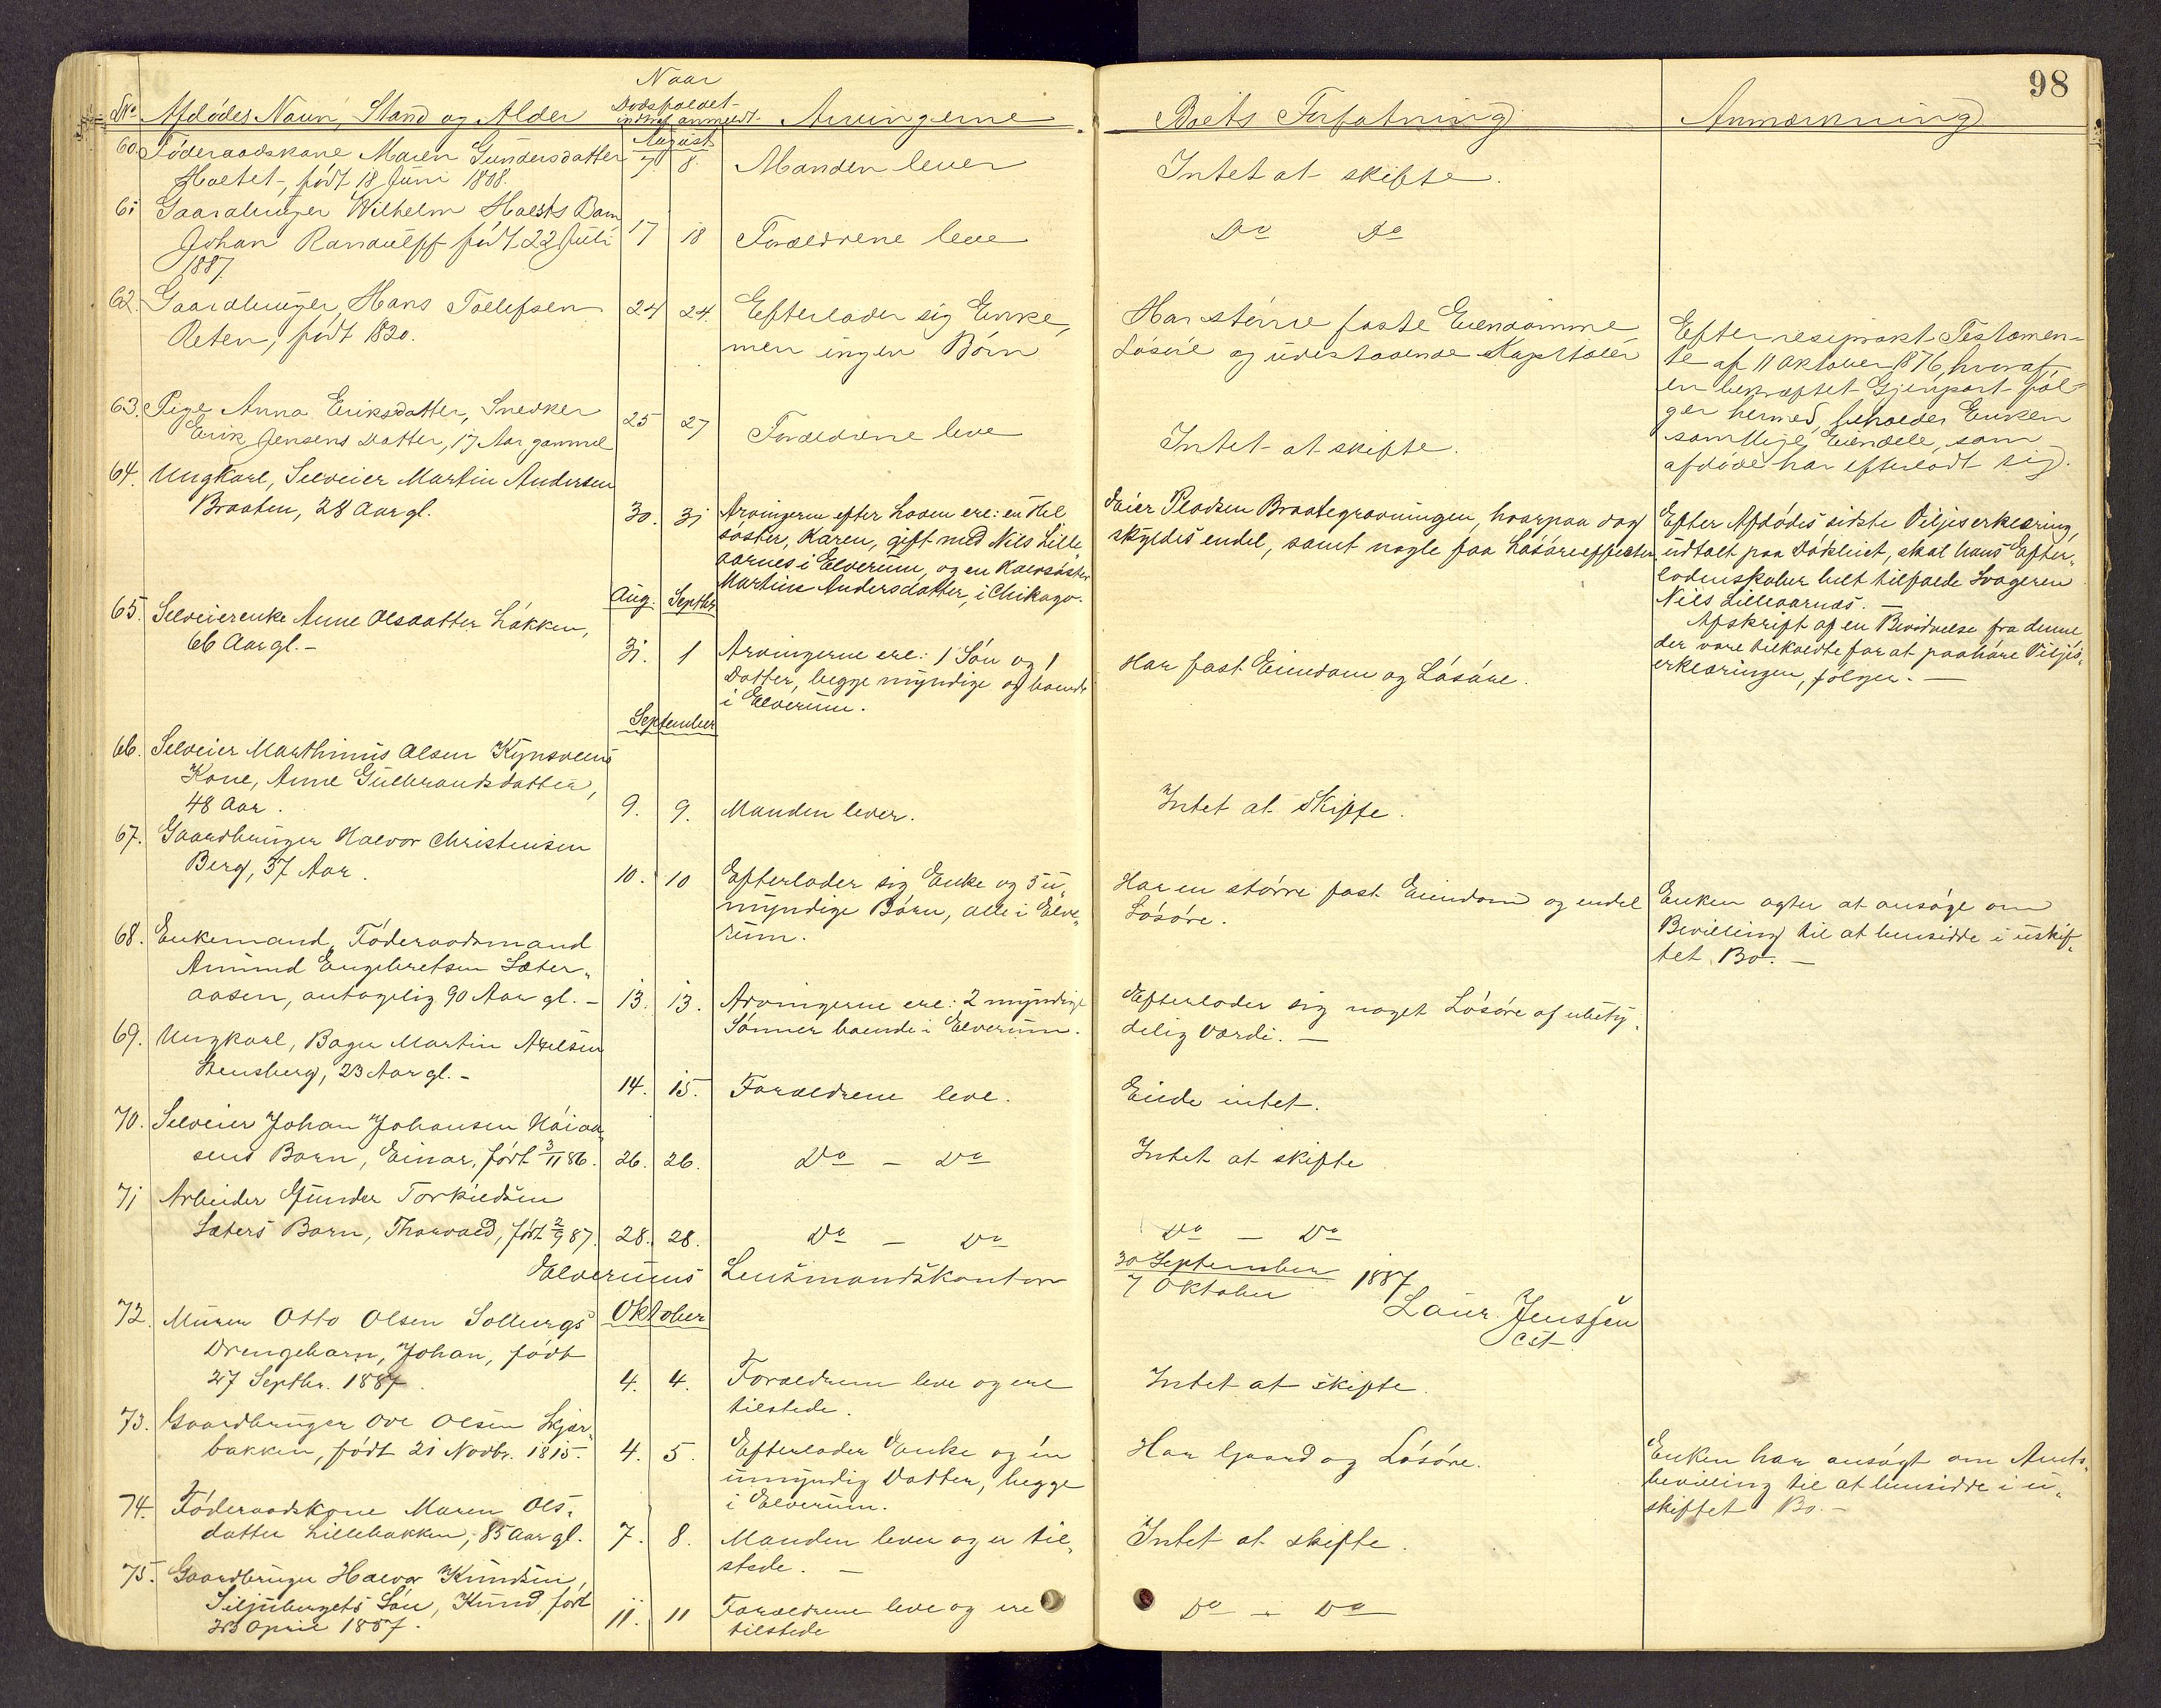 98
No Afdødes Navn, Stand og Alder Naar Dødsfaldet indtraf anmeldt. Arvingerne Boets Forfatning Anmærkning
August
60. Føderaadskone Maren Gundersdatter 7 8. Manden lever Intet at skifte.
født 18 Juni 1808.
61 Gaardbruger Wilhelm Holsts Barn
Johan Randulff født 22 Juli 17 18 Forældrene leve Do Do
1887.
62. Gaardbruger Hans Tollefsen 24 24. Efterlader sig Enke, Har større faste Eiendomme
Reten, født 1820. men ingen Børn Løsøre og udestaaende Kapitaler
Efter resiprokt Testamen-
te af 11 Oktober 1876, hvoraf
en bekræftet Gjenpart føl-
ger hermed, beholder Enken
samtlige Eiendele, som
afdøde har efterladt sig.
63. Pige Anna Eriksdatter, Snedker 25 27 Forældrene leve Intet at skifte.
Erik Jensens Datter, 17 Aar gammel
64. Ungkarl, Selveier Martin Andersen
Braaten, 28 Aar gl. 30. 31 Arvingerne efter Loven ere: en Hel
søster, Karen, gift med Nils Lille
aarnes i Elverum, og en Halvsøster
Martine Andersdatter, i Chikago.
Eier Pladsen Braategravningen, hvorpaa dog
skyldes endel, samt nogle faa Løsøreeffecter.
Efter Afdødes sidste Viljeserklæring,
udtalt paa Dødsleiet, skal hans Efter-
ladenskaber helt tilfalde Svogeren
Nils Lilleaarnes. —
Afskrift af en Bevidnelse fra denne
der vare tilkaldte for at paahøre Viljes-
erklæringen, følger. —
Aug. Septbr
65. Selveierenke Anne Olsdatter Løkken,
66 Aar gl. - 31. 1 Arvingerne ere: 1 Søn og 1
Datter, begge myndige og boende
i Elverum.
Har fast Eiendom og Løsøre.
September
66. Selveier Marthinus Olsen Kynsveens
Kone, Anne Gulbrandsdatter,
48 Aar. 9. 9. Manden lever. Intet at Skifte.
67. Gaardbruger Halvor Christensen
Berg, 37 Aar. 10. 10 Efterlader sig Enke og 5 u-
myndige Børn, alle i Elve-
rum.
Har en større fast Eiendom og endel
Løsøre.
Enken agter at ansøge om
Bevilling til at hensidde i uskif-
tet Bo. —
68. Enkemand, Føderaadsmand
Amund Engebretsen Sæter-
aasen, antagelig 90 Aar gl. - 13. 13. Arvingerne ere: 2 myndige
Sønner boende i Elverum.
Efterlader sig noget Løsøre af ubety-
delig Værdi. —
69. Ungkarl, Bager Martin Axelsen
Stensberg, 23 Aar gl. - 14. 15. Forældrene leve. Eiede intet.
70. Selveier Johan Johansen Høiaa-
sens Barn, Einar, født 3/11 86. 26. 26. Do - Do Intet at skifte
71 Arbeider Gunder Torkildsen
Sæters Barn, Thorvald, født 2/9 87. 28. 28. Do - Do Do - Do
Elverums Lensmandskontor 30 September / 7 Oktober 1887
Laur. Jenssen
cst
Oktober
72. Murer Otto Olsen Solbergs
Drengebarn, Johan, født
27 Septbr. 1887. 4. 4. Forældrene leve og ere
tilstede. Intet at skifte.
73. Gaardbruger Ove Olsen Skjær-
bakken, født 21 Novbr. 1815. 4. 5. Efterlader Enke og én
umyndig Datter, begge
i Elverum.
Har Gaard og Løsøre.
Enken har ansøgt om Amts-
bevilling til at hensidde i u-
skiftet Bo. -
74. Føderaadskone Maren Ols-
datter Lillebakken, 85 Aar gl. 7. 8. Manden lever og er til-
stede. — Intet at skifte.
75. Gaardbruger Halvor Knudsen,
Siljubergets Søn, Knud, født
23 April 1887. 11. 11 Forældrene leve og ere
tilstede Do - Do